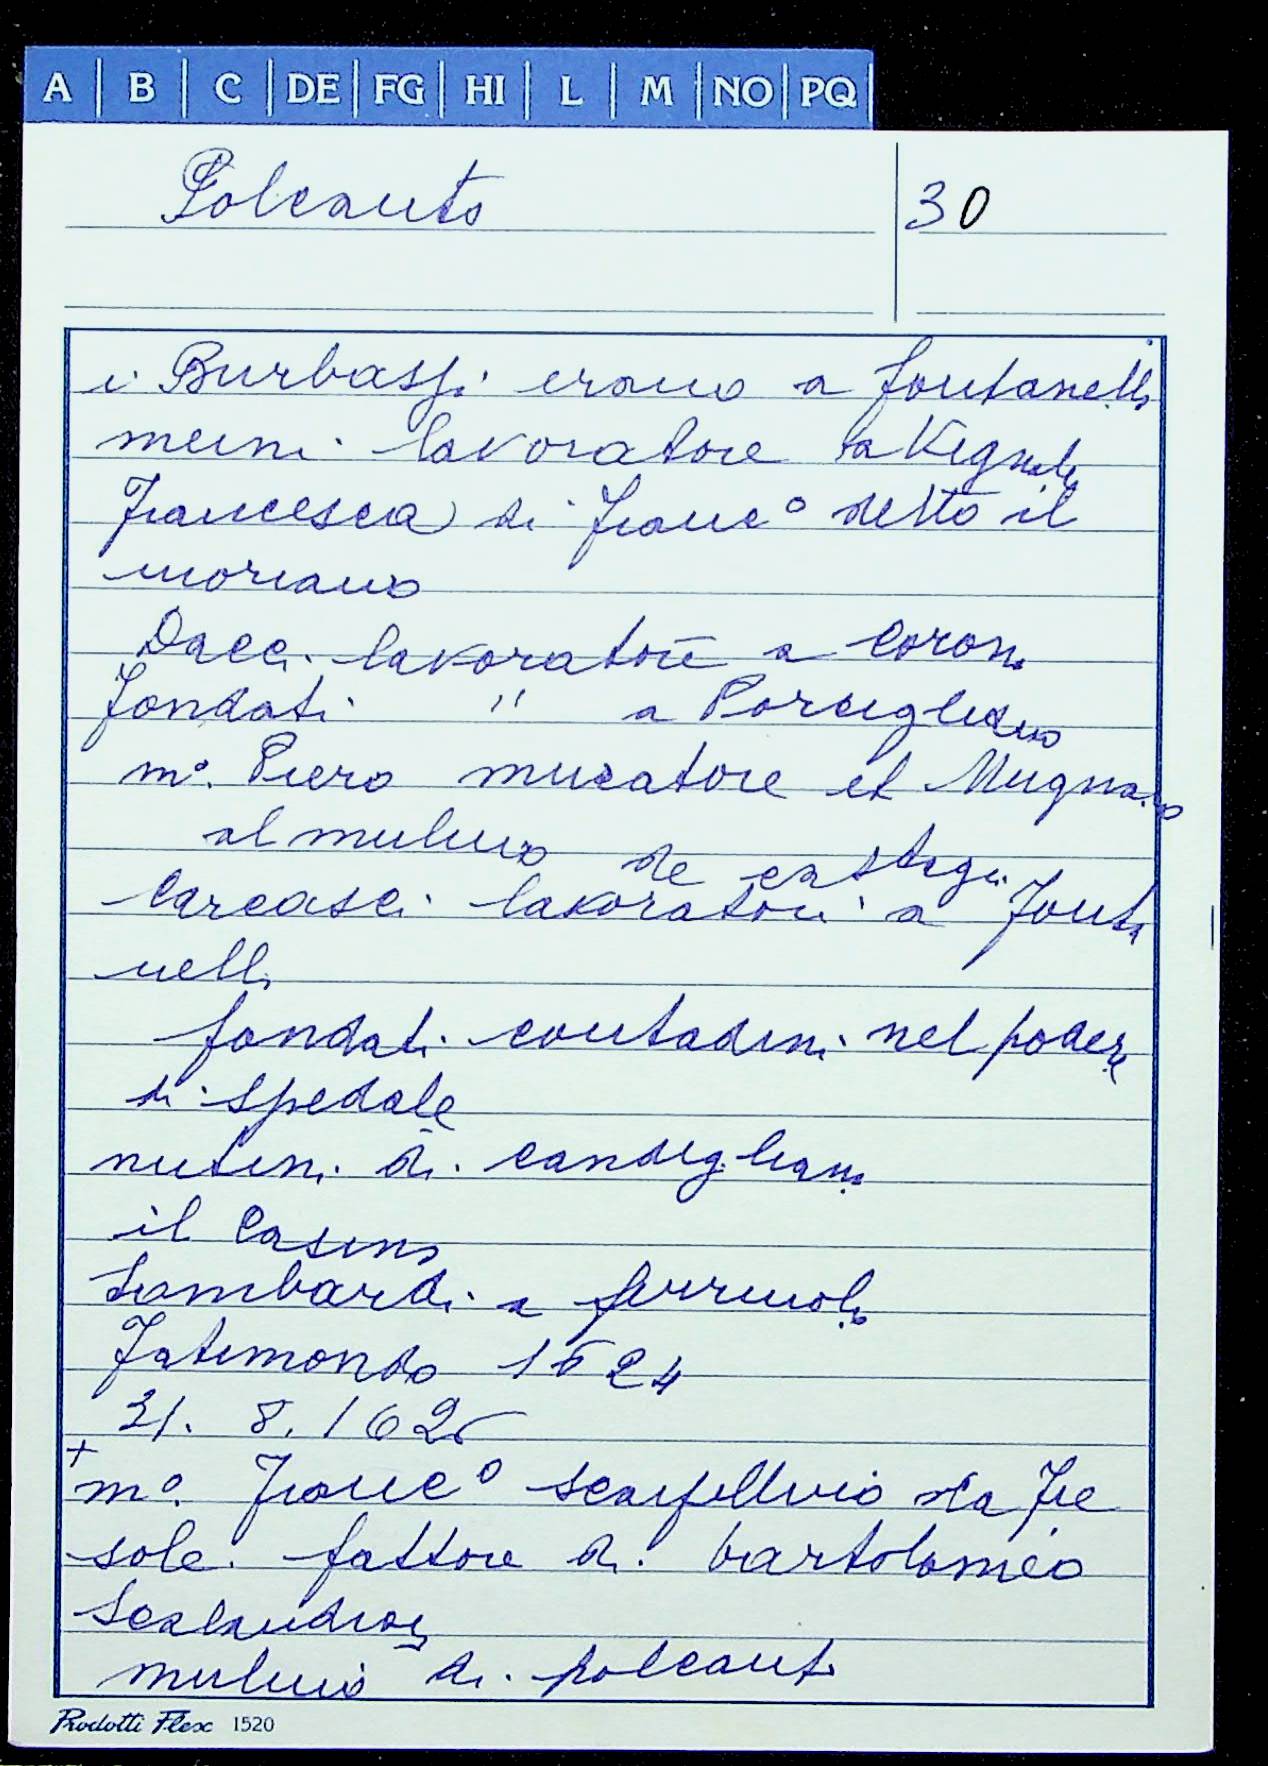 A B C DE FG HI L M NO PQ
Polcanto
30
i Burbassi erano a fontanelle
meini lavoratore a Vignale
Francesca di Franc° detto il
moriano
Dacci lavoratori a Corona
fondati " a Porcigliano
m°. Piero muratore et Mugnaio
al mulino de
Carcasci lavoratori a Fonta
nelle
fondati contadini nel podere
di spedale
nutini di candigliano
il Casino
Lombardi a
1624
31. 8. 162
+
m°. Franc° scarpellino da Fie
sole. fattore di bartolomeo
mulino di polcanto
Prodotti Flex 1520